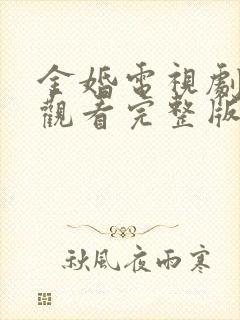 金婚電視劇
觀看完整版
秋風夜雨寒